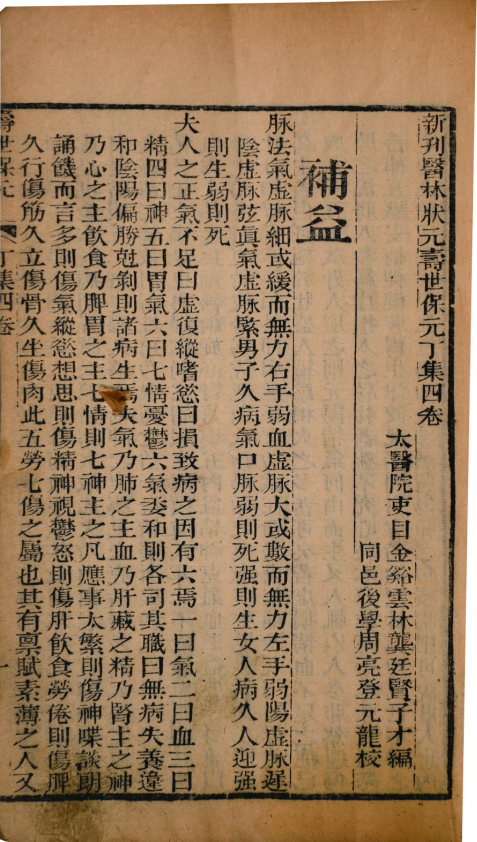 新刊醫林狀元壽世保元丁集四卷
太醫院吏目金谿雲林龔廷賢子才編
同邑後學周亮登元龍校
補益
脉法氣虛脉細或緩而無力右手弱血虛脉大或數而無力左手弱陽虛脉遲
陰虛脉弦眞氣虛脉緊男子久病氣口脉弱則死强則生女人病久人迎强
則生弱則死
夫人之正氣不足曰虛復縱嗜慾曰損致病之因有六焉一曰氣二曰血三曰
精四曰神五曰胃氣六曰七情憂鬱六氣奕和則各司其職曰無病失養違
和陰陽偏勝兙剝則諸病生焉夫氣乃肺之主血乃肝藏之精乃腎主之神
乃心之主飲食乃脾胃之主七情則七神主之凡應事太繁則傷神喋談朗
誦饑而言多則傷氣縱慾想思則傷精神視鬱怒則傷肝飲食勞倦則傷脾
久行傷筋久立傷骨久生傷肉此五勞七傷之屬也其有禀賦素薄之人又
壽世保元 丁集四卷 一